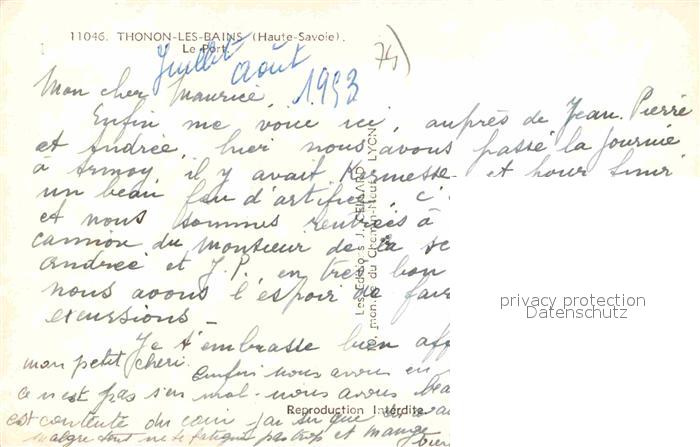 11046. THONON-LES-BAINS (Haute-Savoie).
Le Port.
74)
Juillet
Août 1953
Mon cher Maurice,
Enfin me voici ici, auprès de Jean.Pierre
et Andrée, hier nous avons passé la journée
à Armoy, il y avait Kermesse et pour finir
un beau feu d'artifice, c'
et nous sommes rentrées à
camion du Monsieur de la
Andrée et J.P. en très bon
nous avons l'espoir de fair
excursions -
Je t'embrasse bien aff
mon petit chéri.
Enfin nous avons eu
ce n'est pas s'en mal. nous avons
est contente du coin j'ai su que
malgré tout ne te fatigue pas trop et mange
bien
Les Editions J. CELLARD LYON
Reproduction Interdite.
privacy protection
Datenschutz